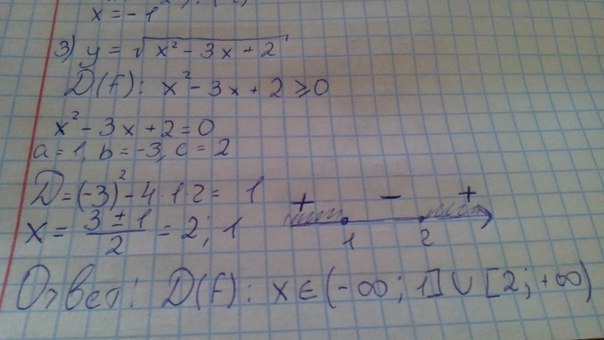 x = -1
3) y = √(x² - 3x + 2)
D(f): x² - 3x + 2 ≥ 0
x² - 3x + 2 = 0
a = 1, b = -3, c = 2
D = (-3)² - 4·1·2 = 1
x = (3 ± 1)/2 = 2; 1
+ - +
1 2
Ответ: D(f): x ∈ (-∞; 1] ∪ [2; +∞)